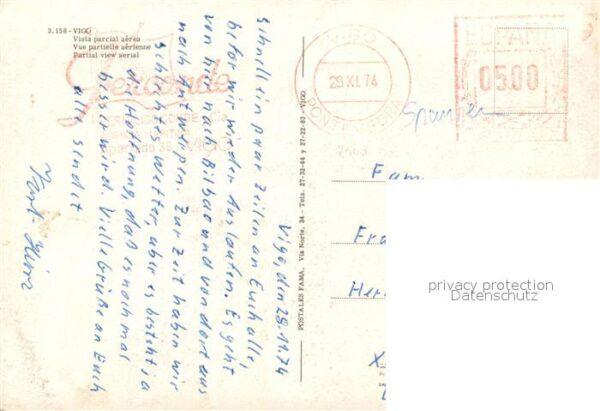 3.158 - VIGO
Vista parcial aérea
Vue partielle aérienne
Partial view aerial
VIGO
29 XI. 74
PONTEVEDRA
ESPAÑA
05.00
Spanien
Vigo, den 28.11.74
Schnell ein paar Zeilen an Euch alle,
bevor wir wieder Auslaufen. Es geht
von hier nach Bilbao und von dort aus
nach Antwerpen. Zur Zeit haben wir
schlechtes Wetter, aber es besteht ja
die Hoffnung, daß es noch mal
besser wird. Viele Grüße an Euch
alle sendet
POSTALES FAMA, Via Norte, 24 - Tels. 27-32-64 y 27-22-83 - VIGO
Fam.
Fra
Her
privacy protection
Datenschutz